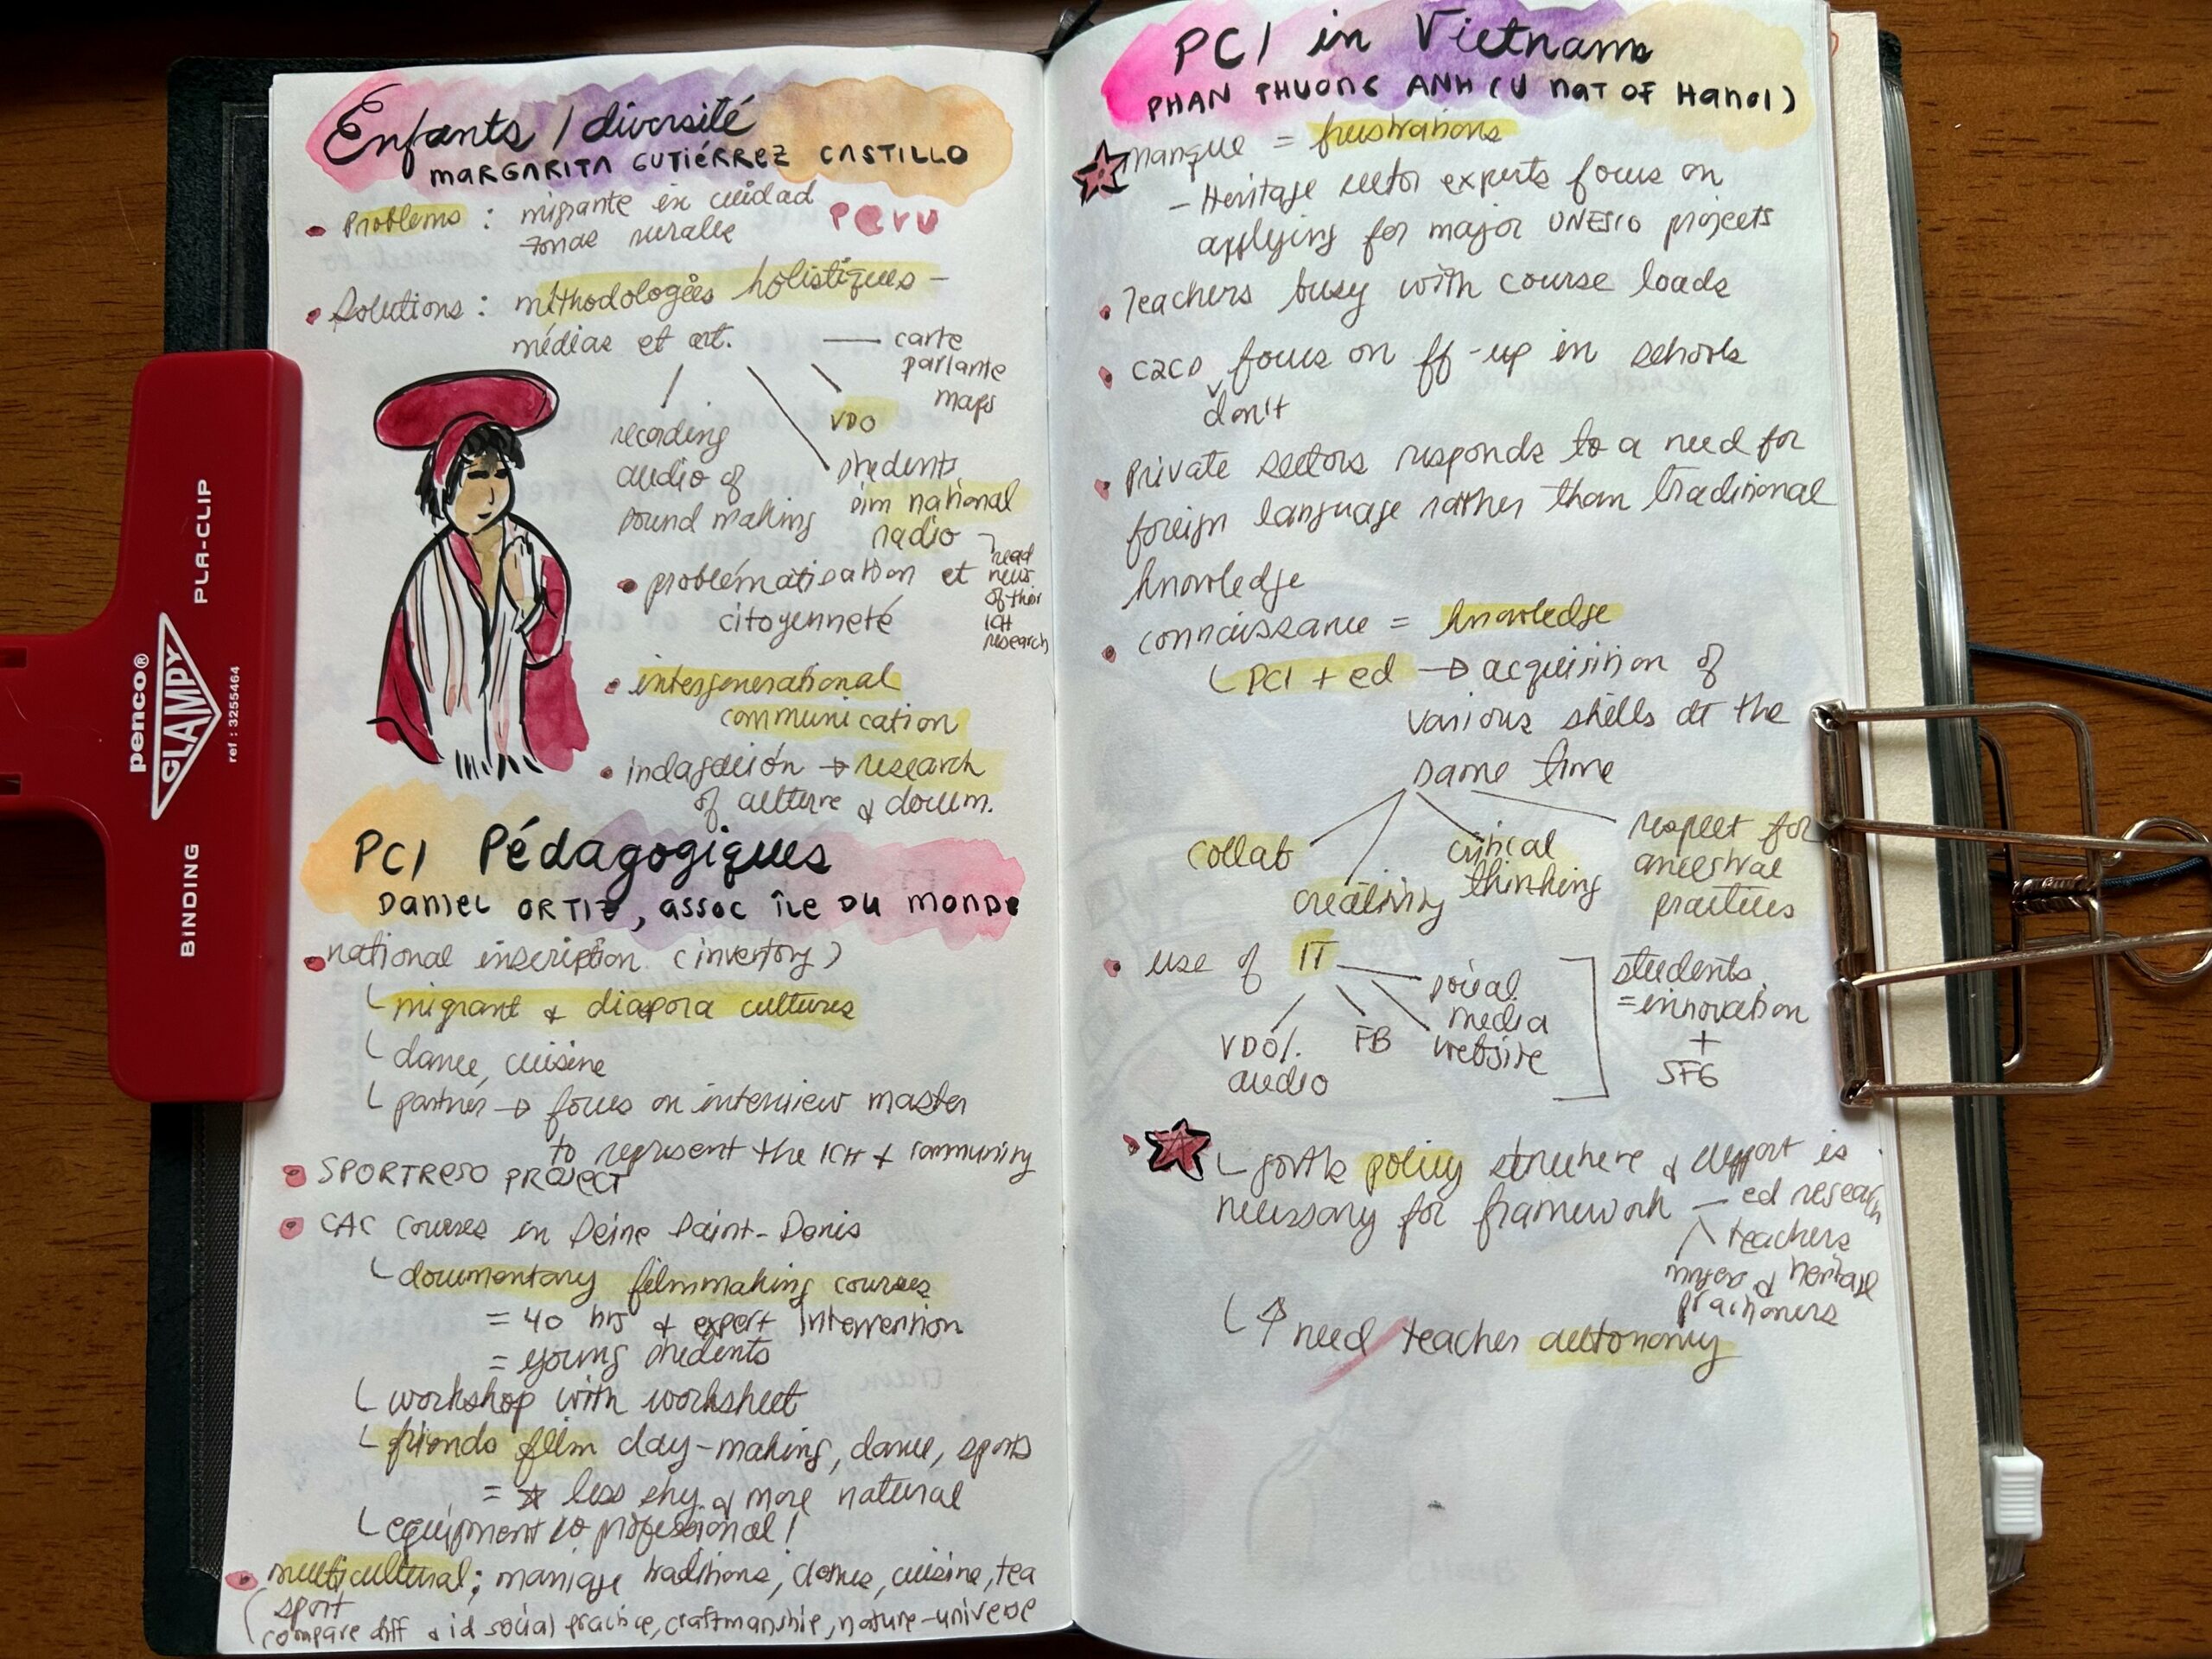 Enfants / diversité
MARGARITA GUTIÉRREZ CASTILLO
• Problems : migrante en cuidad
zonas rurales
PERU
• Solutions : méthodologies holistiques –
médias et art.
carte
parlante
maps
VDO
recording
audio of
sound making
students
national
radio
read
news
of their
ICH
research
• problématisation et
citoyenneté
• intergenerational
communication
• indagación → research
of culture & docum.
PCI Pédagogiques
DANIEL ORTIZ, ASSOC ÎLE DU MONDE
• national inscription (inventory)
migrant & diaspora cultures
dance, cuisine
partner → focus on interview master
to represent the ICH + community
• SPORTRESO PROJECT
• CAC courses in Seine Saint-Denis
documentary filmmaking courses
= 40 hrs & expert intervention
= young students
workshop with worksheet
friends film clay-making, dance, sports
= less shy & more natural
equipment professional!
• multicultural; mariage traditions, clothes, cuisine, tea
sport
compare diff & id social practice, craftmanship, nature-universe
PCI in Vietnam
PHAN THUONG ANH (U NAT OF HANOI)
manque = frustrations
– Heritage sector experts focus on
applying for major UNESCO projects
• Teachers busy with course loads
• focus on ff-up in schools
don't
• Private sectors responds to a need for
foreign language rather than traditional
knowledge
• connaissance = knowledge
PCI + ed → acquisition of
various skills at the
same time
collab
creativity
critical
thinking
respect for
ancestral
practices
• use of IT
VDO/.
audio
FB
social
media
website
students
= innovation
+
SFG
policy structure & support is
necessary for framework – ed research
teachers
& heritage
practioners
↑ need teacher autonomy
penco®
CLAMPY
PLA-CLIP
BINDING
ref : 3255464